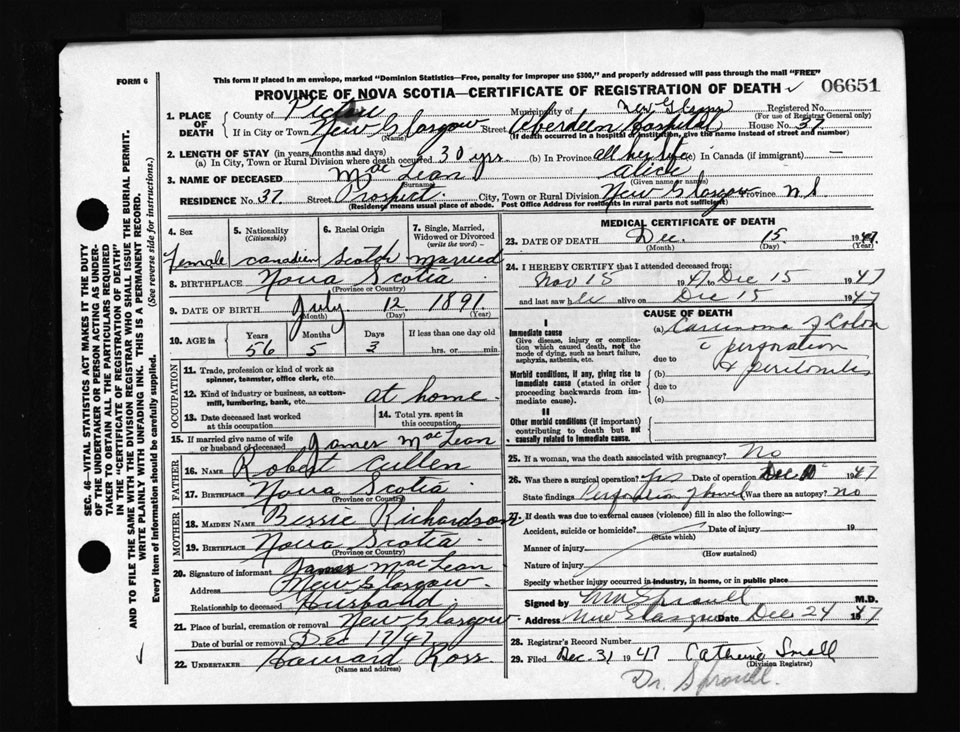 FORM 6
This form if placed in an envelope, marked "Dominion Statistics—Free, penalty for improper use $300," and properly addressed will pass through the mail "FREE"
PROVINCE OF NOVA SCOTIA—CERTIFICATE OF REGISTRATION OF DEATH 06651
1. PLACE OF DEATH County of Pictou Municipality of New Glasgow Registered No. (For use of Registrar General only)
If in City or Town New Glasgow (Name) Street Aberdeen Hospital House No. 37
(If death occurred in a hospital or institution, give the name instead of street and number)
2. LENGTH OF STAY (in years, months and days)
(a) In City, Town or Rural Division where death occurred 30 yrs. (b) In Province all her life (c) In Canada (if immigrant) —
3. NAME OF DECEASED Mac Lean (Surname) Alice (Given name or names)
RESIDENCE No. 37 Street Prospect City, Town or Rural Division New Glasgow Province N.S
(Residence means usual place of abode. Post Office Address for residents in rural parts not sufficient)
SEC. 46—VITAL STATISTICS ACT MAKES IT THE DUTY
OF THE UNDERTAKER OR PERSON ACTING AS UNDER-
TAKER TO OBTAIN ALL THE PARTICULARS REQUIRED
IN THE "CERTIFICATE OF REGISTRATION OF DEATH"
AND TO FILE THE SAME WITH THE DIVISION REGISTRAR WHO SHALL ISSUE THE BURIAL PERMIT.
WRITE PLAINLY WITH UNFADING INK. THIS IS A PERMANENT RECORD.
Every item of information should be carefully supplied. (See reverse side for instructions.)
4. Sex 5. Nationality (Citizenship) 6. Racial Origin 7. Single, Married, Widowed or Divorced (write the word)
Female Canadian Scotch Married
8. BIRTHPLACE Nova Scotia
(Province or Country)
9. DATE OF BIRTH July 12 1891
(Month) (Day) (Year)
10. AGE in Years Months Days If less than one day old
56 5 3 hrs. or min.
OCCUPATION
11. Trade, profession or kind of work as spinner, teamster, office clerk, etc.
12. Kind of industry or business, as cotton-mill, lumbering, bank, etc. at home
13. Date deceased last worked at this occupation 14. Total yrs. spent in this occupation
15. If married give name of wife or husband of deceased James Mac Lean
FATHER
16. NAME Robert Cullen
17. BIRTHPLACE Nova Scotia
(Province or Country)
MOTHER
18. MAIDEN NAME Bessie Richardson
19. BIRTHPLACE Nova Scotia
(Province or Country)
20. Signature of informant James Mac Lean
Address New Glasgow
Relationship to deceased Husband
21. Place of burial, cremation or removal New Glasgow
Date of burial or removal Dec 17/47
22. UNDERTAKER Howard Ross
(Name and address)
MEDICAL CERTIFICATE OF DEATH
23. DATE OF DEATH Dec. 15 1947
(Month) (Day) (Year)
24. I HEREBY CERTIFY that I attended deceased from:
Nov 15 1947 to Dec 15 1947
and last saw her alive on Dec 15 1947
CAUSE OF DEATH
I
Immediate cause
Give disease, injury or complication which caused death, not the mode of dying, such as heart failure, asphyxia, asthenia, etc.
(a) Carcinoma of Colon
c perforation
due to & peritonitis
Morbid conditions, if any, giving rise to immediate cause (stated in order proceeding backwards from immediate cause).
(b)
due to
(c)
II
Other morbid conditions (if important) contributing to death but not causally related to immediate cause.
25. If a woman, was the death associated with pregnancy? No
26. Was there a surgical operation? Yes Date of operation Dec 1947
State findings Perforation of bowel Was there an autopsy? No
27. If death was due to external causes (violence) fill in also the following:—
Accident, suicide or homicide? (State which) Date of injury 19
Manner of injury (How sustained)
Nature of injury
Specify whether injury occurred in industry, in home, or in public place
Signed by Sproull M.D.
Address New Glasgow Date Dec 24 1947
28. Registrar's Record Number
29. Filed Dec. 31 1947 Catherine Small
(Division Registrar)
Dr. Sproull.